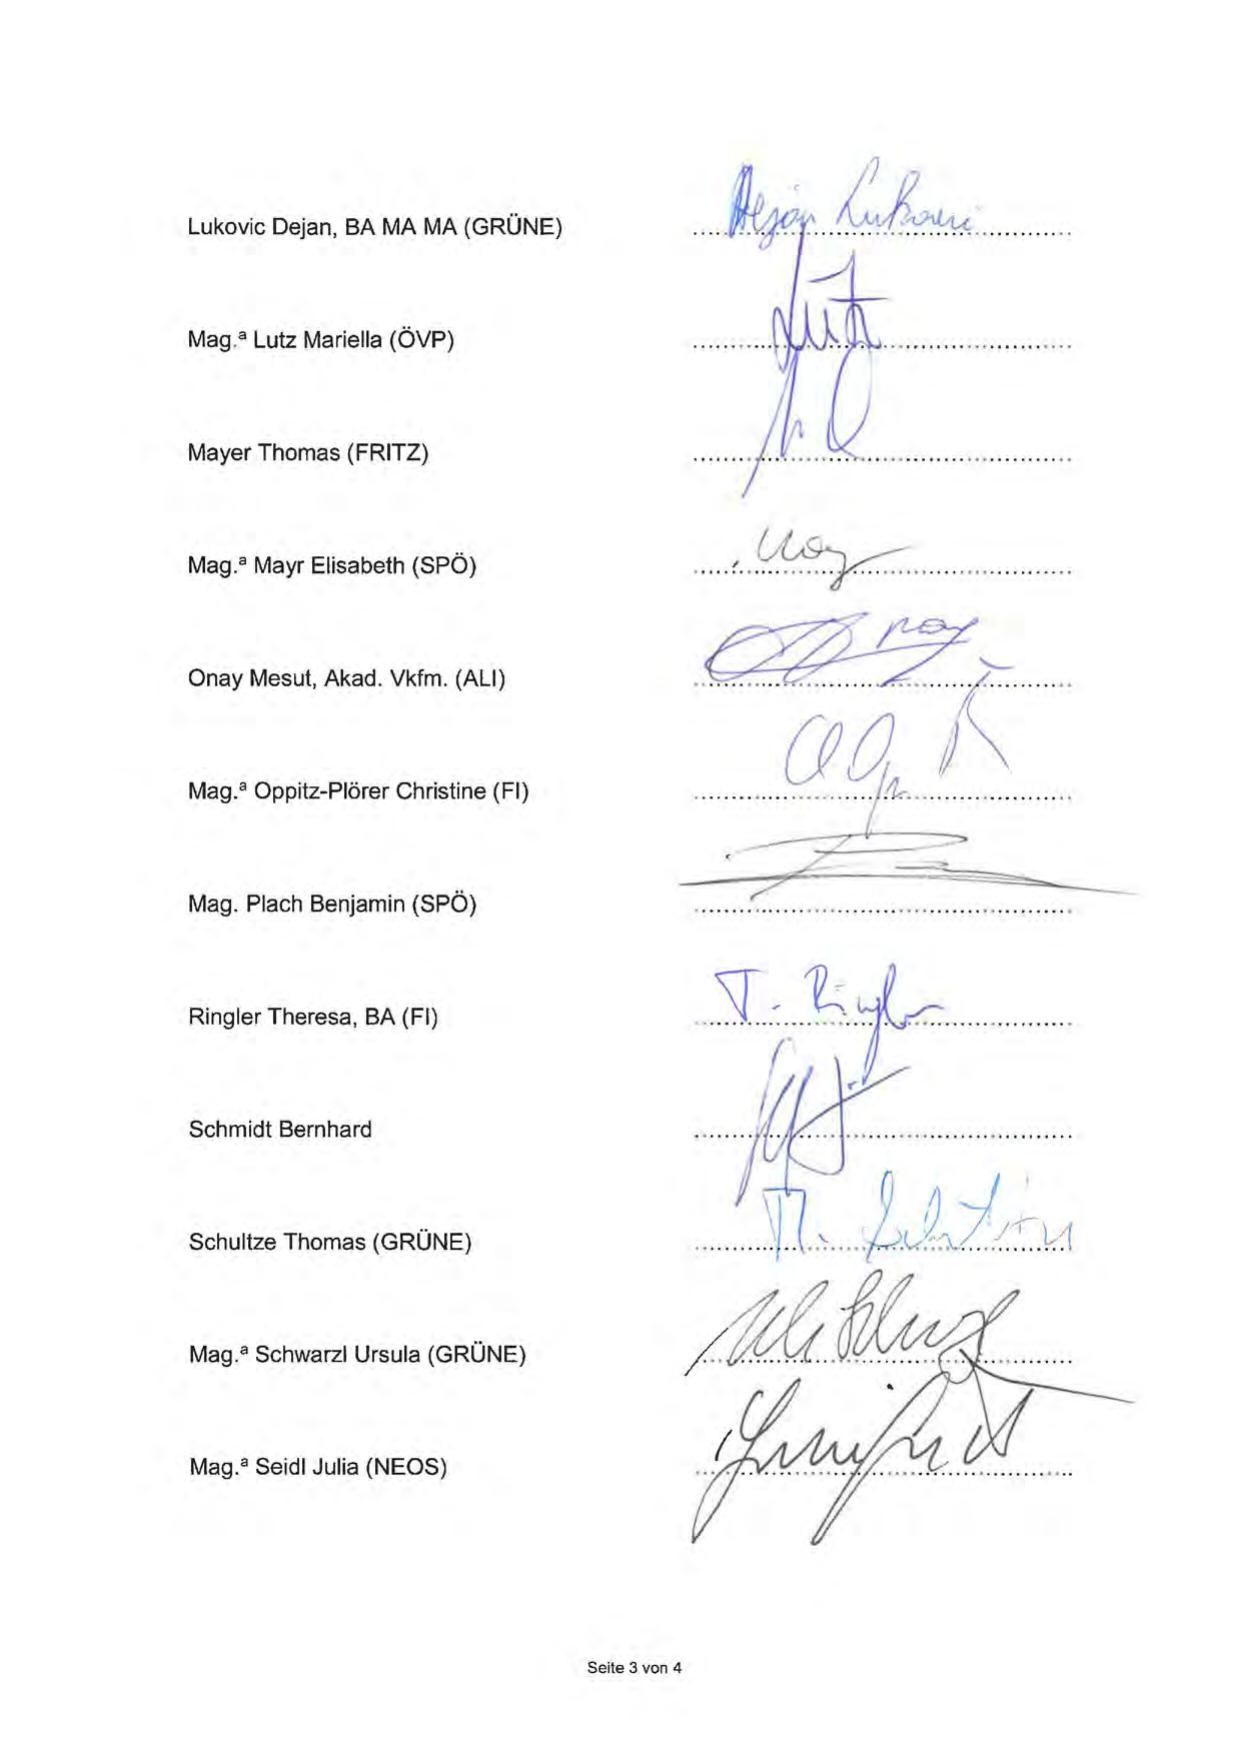 Lukovic Dejan, BA MA MA (GRÜNE) Dejan Lukovic
Mag.ª Lutz Mariella (ÖVP) Lutz
Mayer Thomas (FRITZ)
Mag.ª Mayr Elisabeth (SPÖ)
Onay Mesut, Akad. Vkfm. (ALI)
Mag.ª Oppitz-Plörer Christine (FI)
Mag. Plach Benjamin (SPÖ)
Ringler Theresa, BA (FI) T. Ringler
Schmidt Bernhard
Schultze Thomas (GRÜNE)
Mag.ª Schwarzl Ursula (GRÜNE)
Mag.ª Seidl Julia (NEOS)
Seite 3 von 4